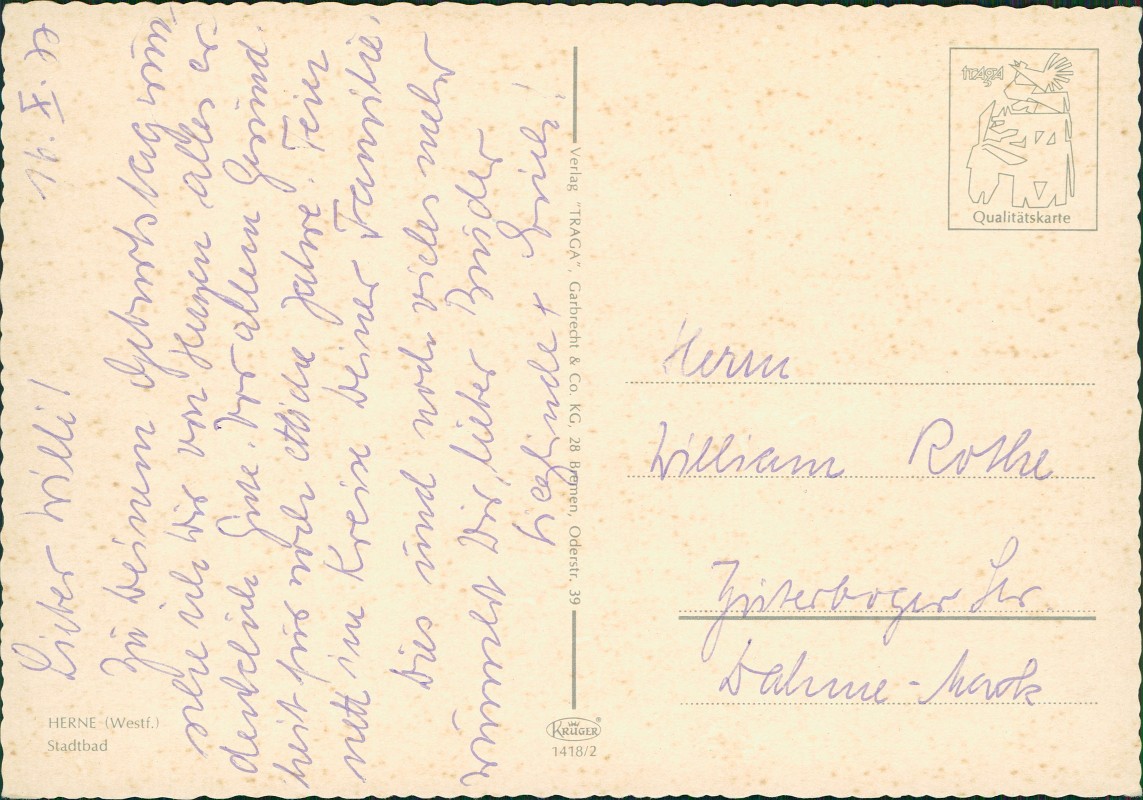 9. X. 72
Lieber Willi!
Zu Deinem Geburtstag wün-
sche ich Dir von Herzen alles er-
denklich Gute. Vor allem Gesund-
heit für noch etliche Jahre. Feier
nett im Kreise Deiner Familie.
Dies und noch vieles mehr
wünscht Dir, lieber Bruder

HERNE (Westf.)
Stadtbad
Verlag "TRAGA", Garbrecht & Co. KG, 28 Bremen, Oderstr. 39
KRÜGER
1418/2
traga
Qualitätskarte
Herrn
William Rothe
Jüterboger Str
Dahme-Mark